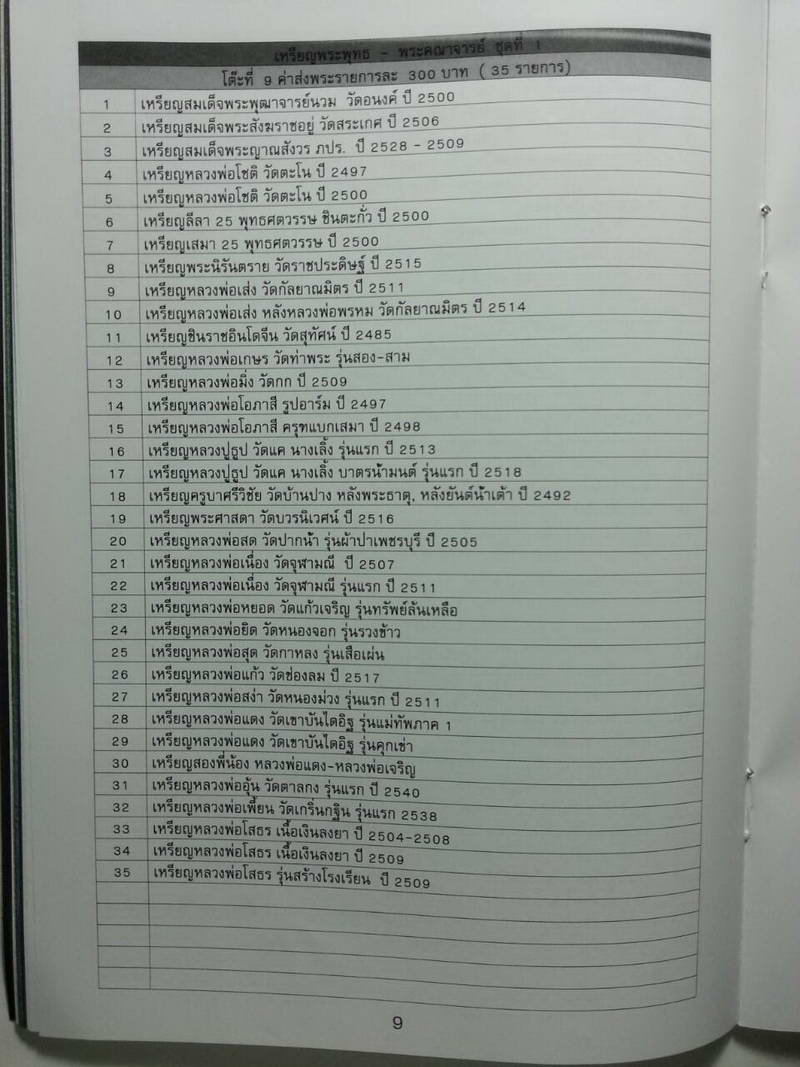 เหรียญพระพุทธ - พระคณาจารย์ ชุดที่ 1
โต๊ะที่ 9 ค่าส่งพระรายการละ 300 บาท ( 35 รายการ)
1 เหรียญสมเด็จพระพุฒาจารย์นวม วัดอนงค์ ปี 2500
2 เหรียญสมเด็จพระสังฆราชอยู่ วัดสระเกศ ปี 2506
3 เหรียญสมเด็จพระญาณสังวร ภปร. ปี 2528 - 2509
4 เหรียญหลวงพ่อโชติ วัดตะโน ปี 2497
5 เหรียญหลวงพ่อโชติ วัดตะโน ปี 2500
6 เหรียญลีลา 25 พุทธศตวรรษ ชินตะกั่ว ปี 2500
7 เหรียญเสมา 25 พุทธศตวรรษ ปี 2500
8 เหรียญพระนิรันตราย วัดราชประดิษฐ์ ปี 2515
9 เหรียญหลวงพ่อเส่ง วัดกัลยาณมิตร ปี 2511
10 เหรียญหลวงพ่อเส่ง หลังหลวงพ่อพรหม วัดกัลยาณมิตร ปี 2514
11 เหรียญชินราชอินโดจีน วัดสุทัศน์ ปี 2485
12 เหรียญหลวงพ่อเกษร วัดท่าพระ รุ่นสอง-สาม
13 เหรียญหลวงพ่อมิ่ง วัดกก ปี 2509
14 เหรียญหลวงพ่อโอภาสี รูปอาร์ม ปี 2497
15 เหรียญหลวงพ่อโอภาสี ครุฑแบกเสมา ปี 2498
16 เหรียญหลวงปู่ธูป วัดแค นางเลิ้ง รุ่นแรก ปี 2513
17 เหรียญหลวงปู่ธูป วัดแค นางเลิ้ง บาตรน้ำมนต์ รุ่นแรก ปี 2518
18 เหรียญครูบาศรีวิชัย วัดบ้านปาง หลังพระธาตุ, หลังยันต์น้ำเต้า ปี 2492
19 เหรียญพระศาสดา วัดบวรนิเวศน์ ปี 2516
20 เหรียญหลวงพ่อสด วัดปากน้ำ รุ่นผ้าป่าเพชรบุรี ปี 2505
21 เหรียญหลวงพ่อเนื่อง วัดจุฬามณี ปี 2507
22 เหรียญหลวงพ่อเนื่อง วัดจุฬามณี รุ่นแรก ปี 2511
23 เหรียญหลวงพ่อหยอด วัดแก้วเจริญ รุ่นทรัพย์ล้นเหลือ
24 เหรียญหลวงพ่อยิด วัดหนองจอก รุ่นรวงข้าว
25 เหรียญหลวงพ่อสุด วัดกาหลง รุ่นเสือเผ่น
26 เหรียญหลวงพ่อแก้ว วัดช่องลม ปี 2517
27 เหรียญหลวงพ่อสง่า วัดหนองม่วง รุ่นแรก ปี 2511
28 เหรียญหลวงพ่อแดง วัดเขาบันไดอิฐ รุ่นแม่ทัพภาค 1
29 เหรียญหลวงพ่อแดง วัดเขาบันไดอิฐ รุ่นคุกเข่า
30 เหรียญสองพี่น้อง หลวงพ่อแดง-หลวงพ่อเจริญ
31 เหรียญหลวงพ่ออุ้น วัดตาลกง รุ่นแรก ปี 2540
32 เหรียญหลวงพ่อเพี้ยน วัดเกริ่นกฐิน รุ่นแรก 2538
33 เหรียญหลวงพ่อโสธร เนื้อเงินลงยา ปี 2504-2508
34 เหรียญหลวงพ่อโสธร เนื้อเงินลงยา ปี 2509
35 เหรียญหลวงพ่อโสธร รุ่นสร้างโรงเรียน ปี 2509
9